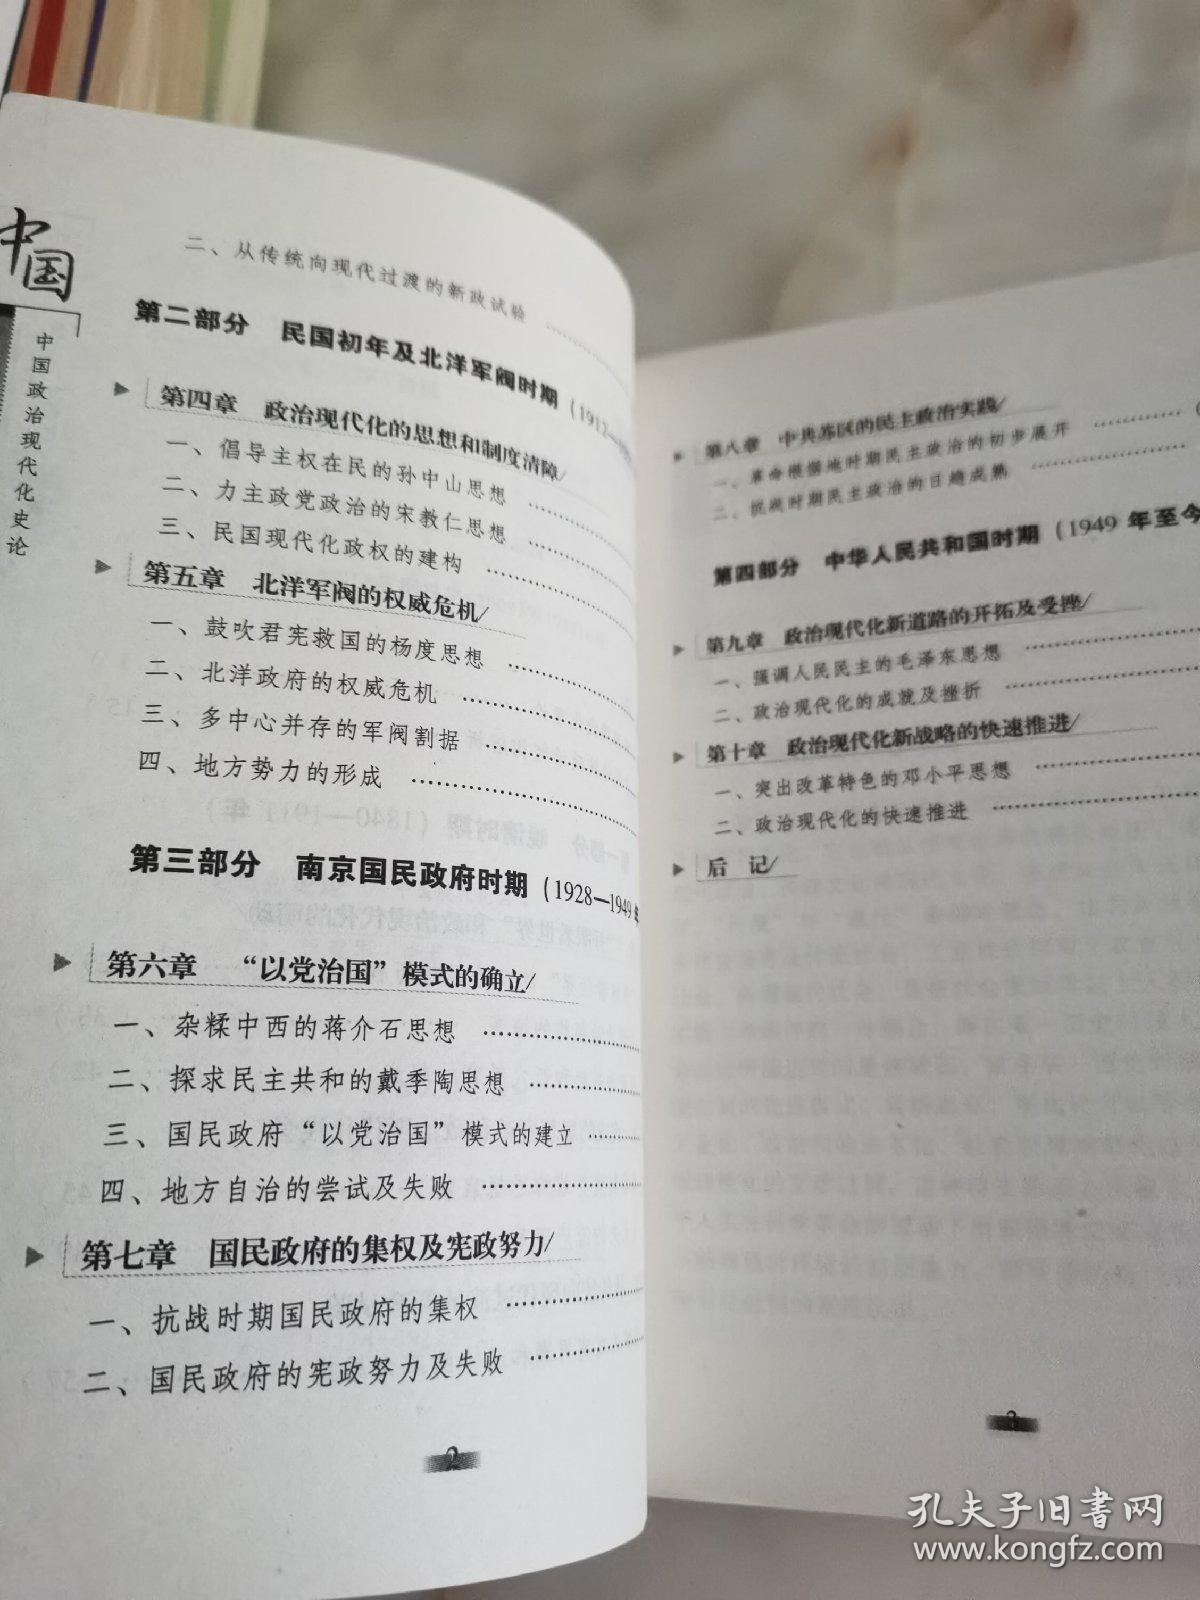 中国
中国政治现代化史论
二、从传统向现代过渡的新政试验 ……
第二部分 民国初年及北洋军阀时期（1912—
第四章 政治现代化的思想和制度清障/
一、倡导主权在民的孙中山思想 ……
二、力主政党政治的宋教仁思想 ……
三、民国现代化政权的建构 ……
第五章 北洋军阀的权威危机/
一、鼓吹君宪救国的杨度思想 ……
二、北洋政府的权威危机 ……
三、多中心并存的军阀割据 ……
四、地方势力的形成 ……
第三部分 南京国民政府时期（1928—1949年
第六章 “以党治国”模式的确立/
一、杂糅中西的蒋介石思想 ……
二、探求民主共和的戴季陶思想 ……
三、国民政府“以党治国”模式的建立 ……
四、地方自治的尝试及失败 ……
第七章 国民政府的集权及宪政努力/
一、抗战时期国民政府的集权 ……
二、国民政府的宪政努力及失败 ……
2
第八章 中共苏区的民主政治实践/
一、革命根据地时期民主政治的初步展开 ……
二、抗战时期民主政治的日趋成熟 ……
第四部分 中华人民共和国时期（1949 年至今
第九章 政治现代化新道路的开拓及受挫/
一、强调人民民主的毛泽东思想 ……
二、政治现代化的成就及挫折 ……
第十章 政治现代化新战略的快速推进/
一、突出改革特色的邓小平思想 ……
二、政治现代化的快速推进 ……
后 记/
3
孔夫子旧书网
www.kongfz.com